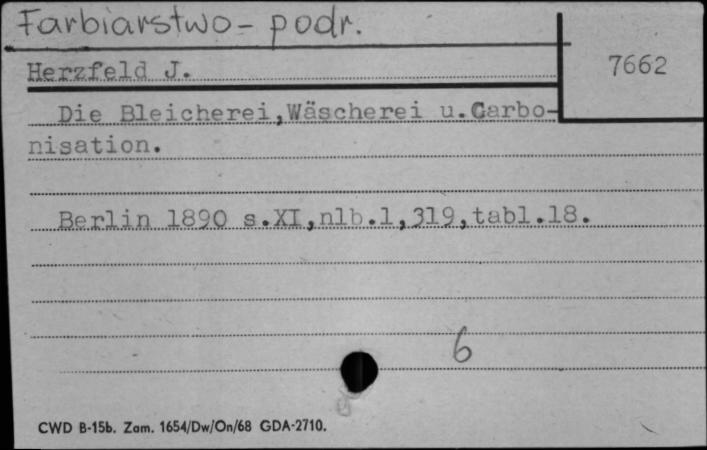 Farbiarstwo - podr.
7662
Herzfeld J.
Die Bleicherei,Wäscherei u.Carbo-
nisation.
Berlin 1890 s.XI,nlb.1,319,tabl.18.
6
CWD B-15b. Zam. 1654/Dw/On/68 GDA-2710.